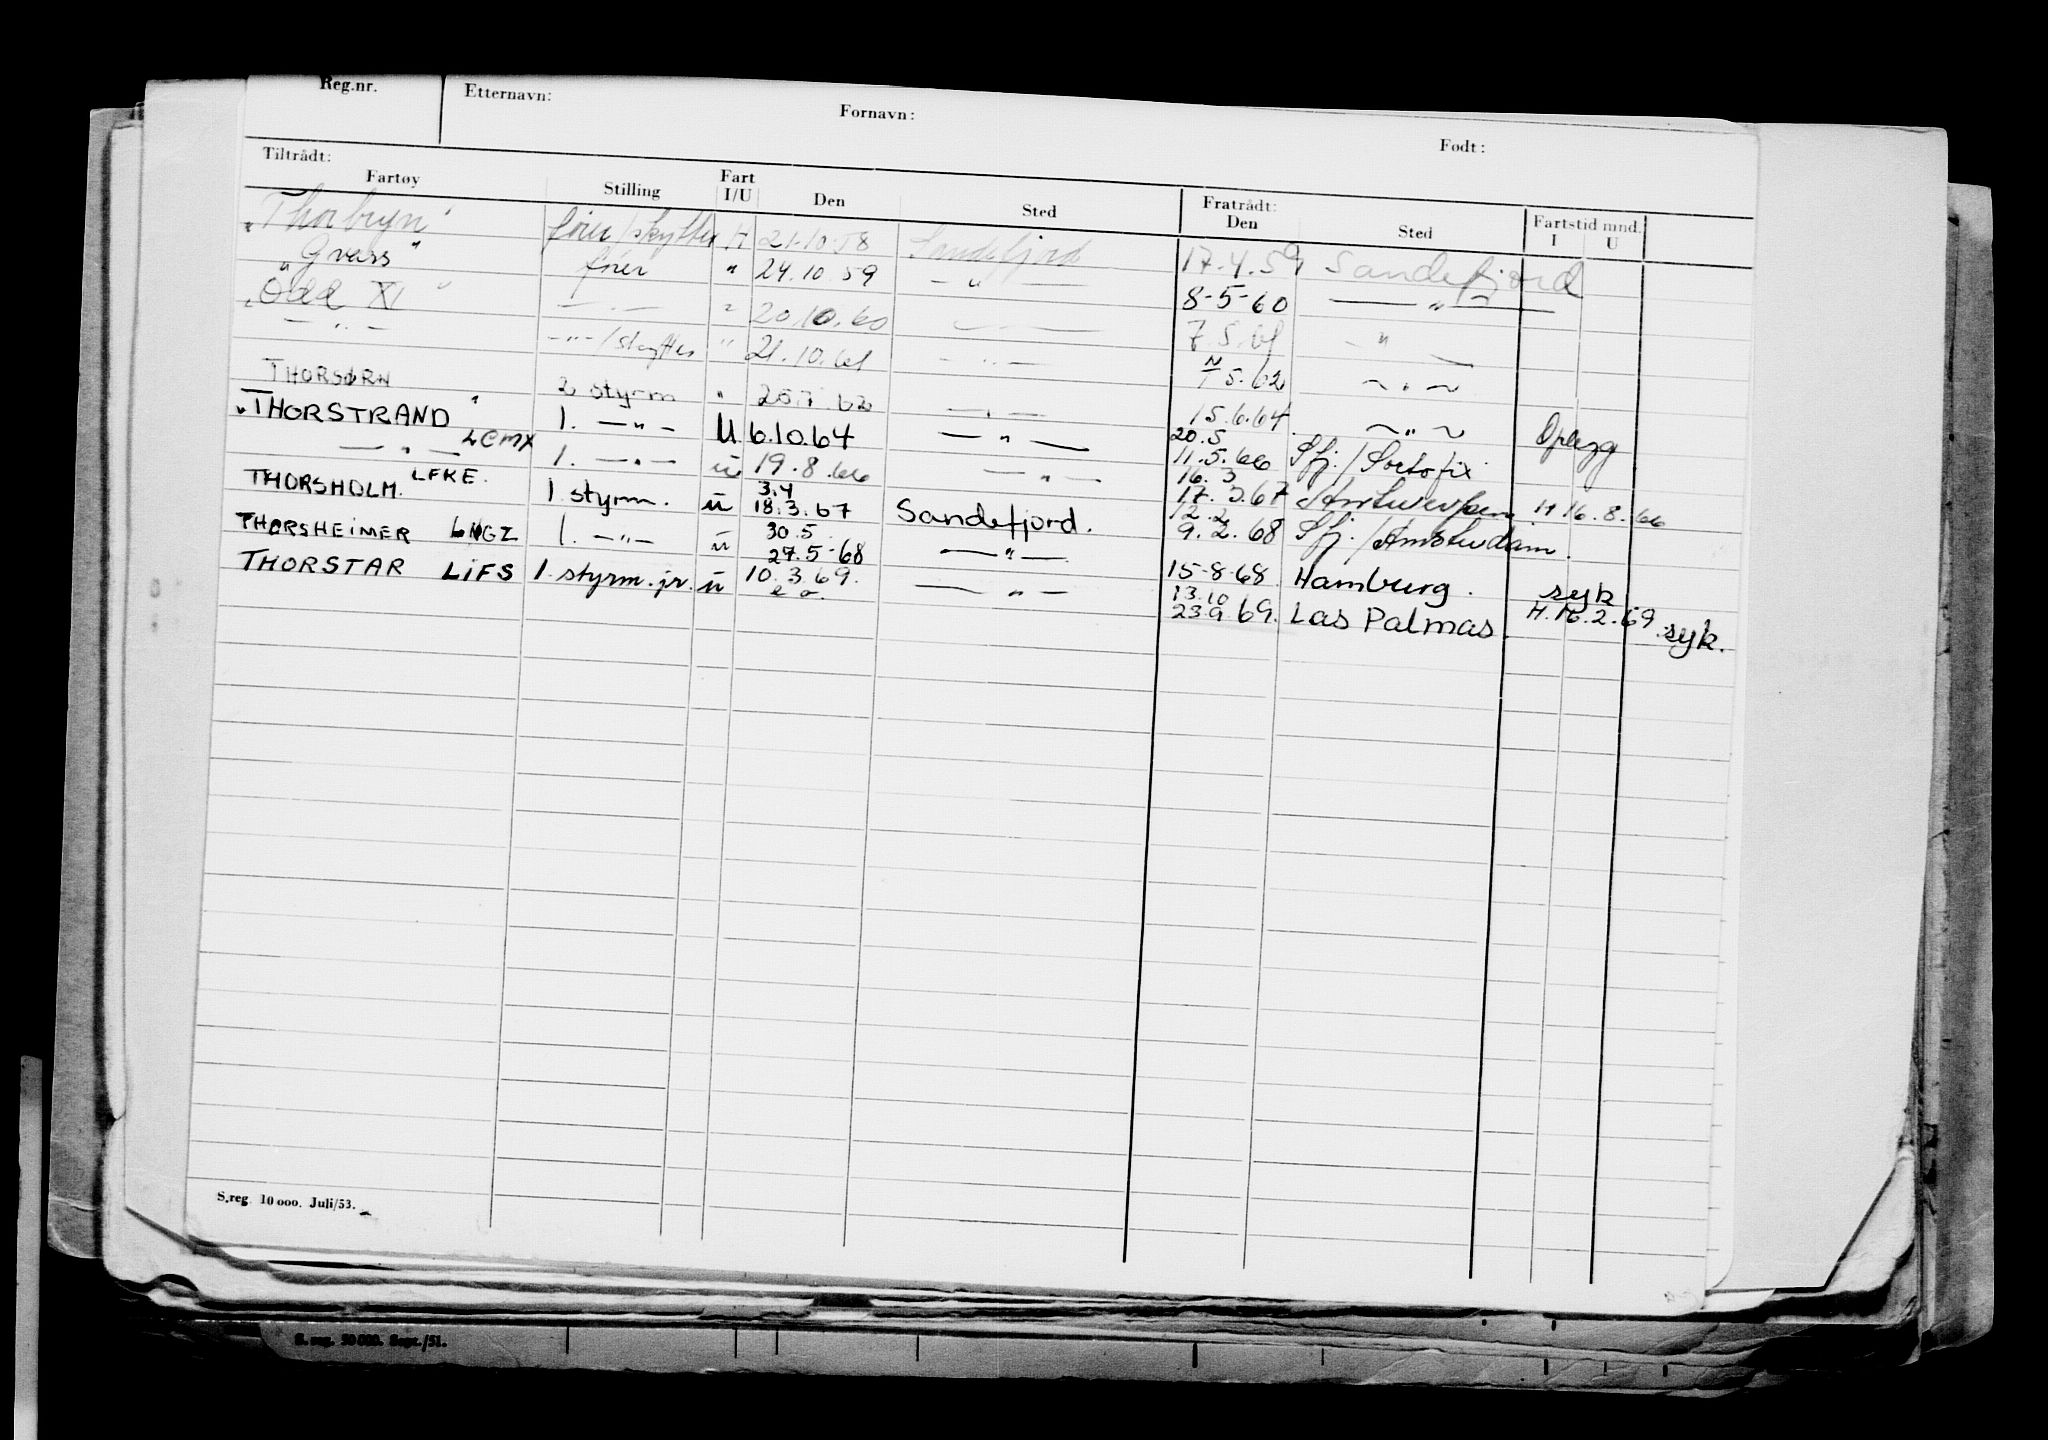 Reg.nr. Etternavn: Fornavn: Født:
Tiltrådt: Fratrådt:
Fartøy Stilling Fart I/U Den Sted Den Sted Fartstid mnd. I U
"Thorbryn" fører/skytter H 21.10.58 Sandefjord 17.4.59 Sandefjord
"Gvass" fører " 24.10.59 — " — 8-5-60 — " —
"Odd XI" — . — " 20.10.60 — . — 7.5.61 — " —
— " — — " —/skytter " 21.10.61 — " — 5.62 — " —
THORSØRN 2 styrm " 62 — " — 15.6.64 — " — Oplegg
"THORSTRAND" LCMX 1. — " — U 6.10.64 — " — 20.5 11.5.66 Sfj./
— " — 1. — " — u 19.8.66 — " — 16.3 17.3.67 Antwerpen H 16.8.66
THORSHOLM. LFKE. 1 styrm. u 3.4 18.3.67 Sandefjord. 12.2 9.2.68 Sfj./Amsterdam.
THORSHEIMER 1. — " — u 30.5 27.5-68 — " — 15-8-68 Hamburg. syk
THORSTAR LIFS 1. styrm. jr. u 10.3.69. — " — 13.10 23.9.69. Las Palmas. H.16.2.69. syk.
S.reg. 10 000. Juli/53.
S. reg. 30 000. Sept./51.